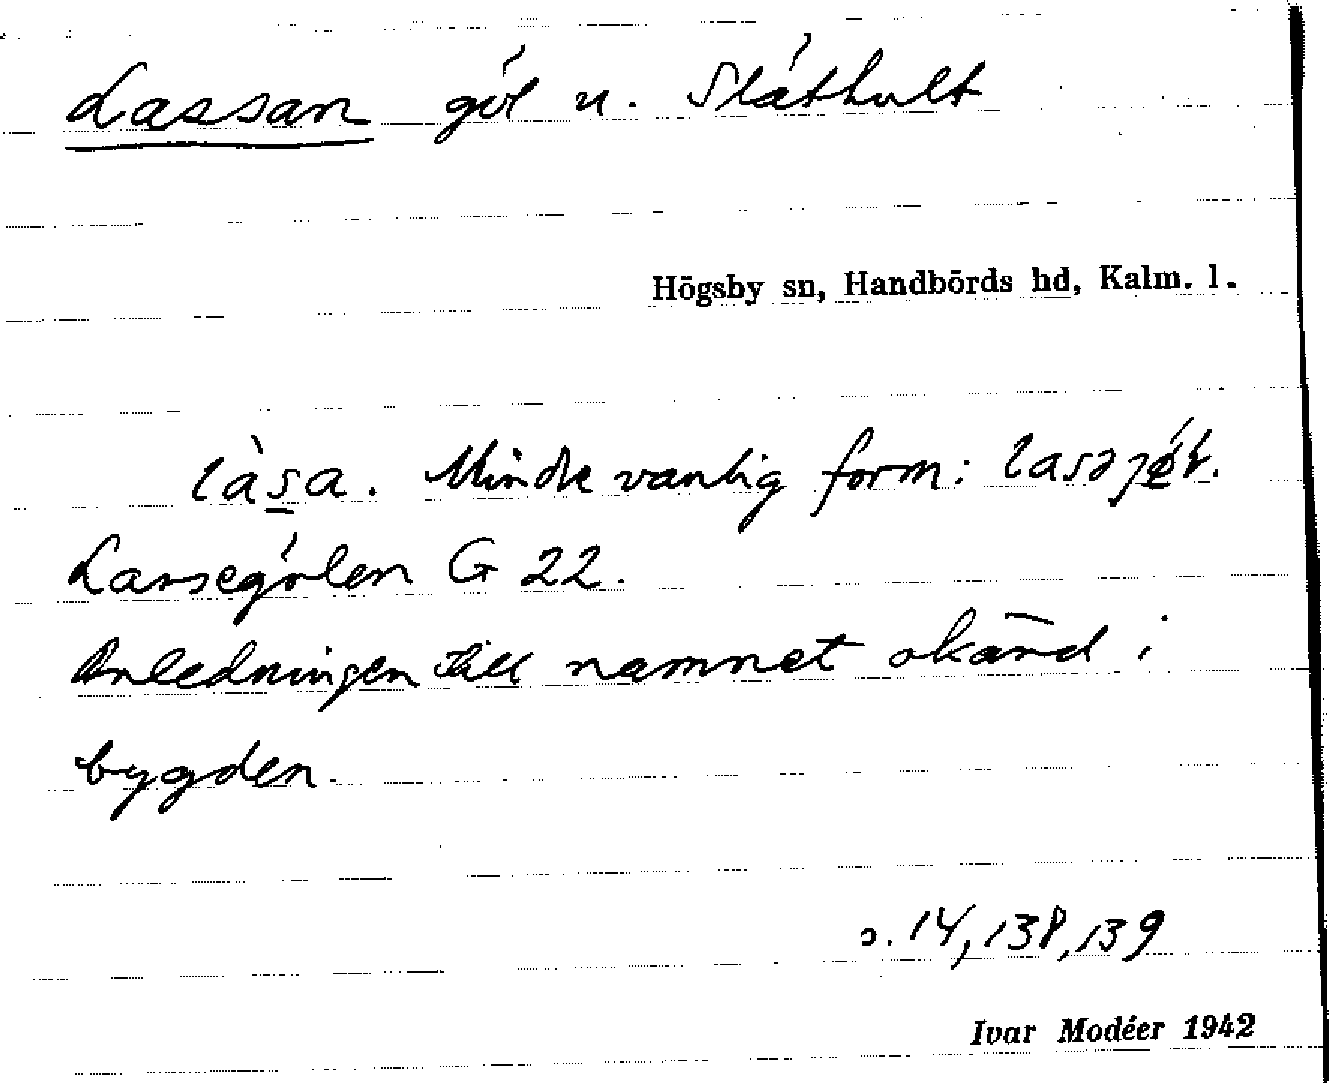 Lassan göl u. Slåthult
Högsby sn, Handbörds hd, Kalm. l.
làsa. Mindre vanlig form:
Larsegölen G 22.
Anledningen till namnet okänd i
bygden.
s. 14, 138, 139
Ivar Modéer 1942